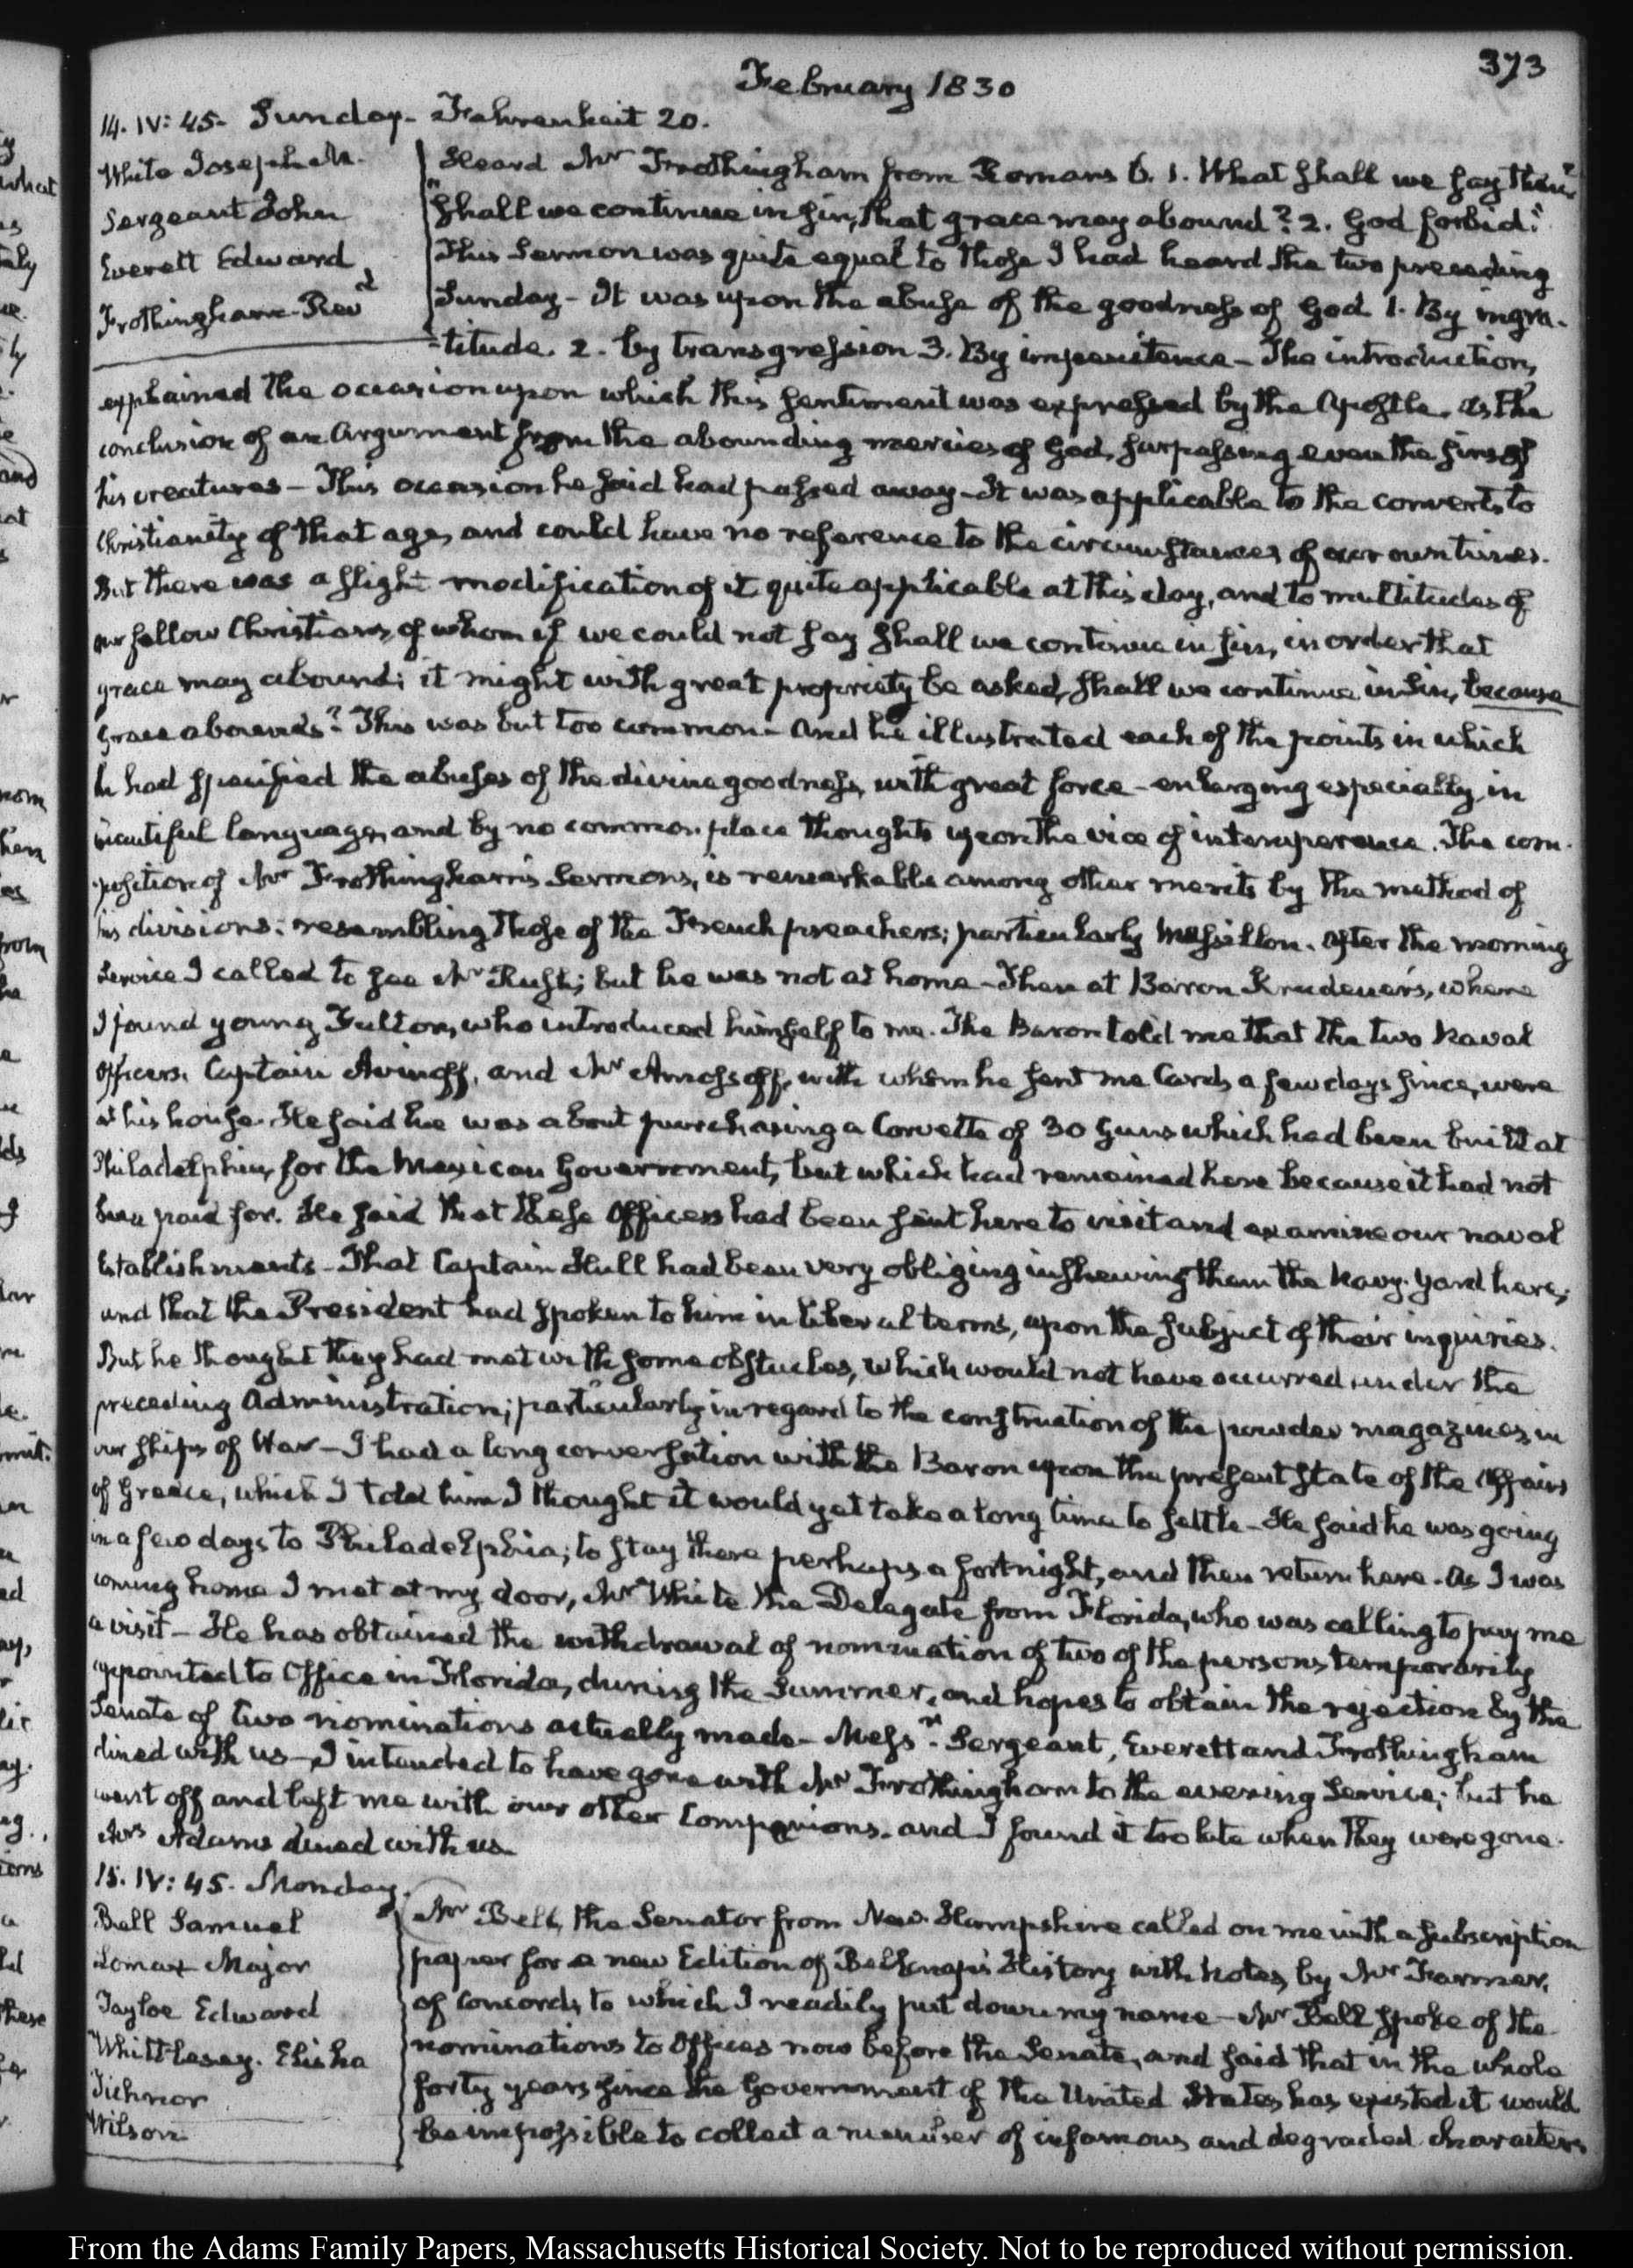 373
February 1830
14. IV: 45. Sunday. Fahrenheit 20.
White Joseph M.
Sergeant John
Everett Edward
Frothingham Revd
Heard Mr Frothingham from Romans 6. 1. What shall we say then?
"Shall we continue in sin, that grace may abound? 2. God forbid."
This Sermon was quite equal to those I had heard the two preceding
Sunday - It was upon the abuse of the goodness of God 1. By ingra-
-titude. 2. by transgression 3. By impenitence - The introduction,
explained the occasion upon which this sentiment was expressed by the Apostle. as the
conclusion of an Argument from the abounding mercies of God, surpassing even the sins of
his creatures - This occasion he said had passed away - It was applicable to the converts to
Christianity of that age, and could have no reference to the circumstances of our own times.
But there was a slight modification of it quite applicable at this day, and to multitudes of
our fellow Christians, of whom if we could not say shall we continue in sin, in order that
grace may abound; it might with great propriety be asked, shall we continue in sin, because
grace abounds? This was but too common - And he illustrated each of the points in which
he had specified the abuses of the divine goodness, with great force - enlarging especially, in
beautiful language, and by no common place thoughts upon the vice of intemperance. The com-
-position of Mr Frothingham's Sermons, is remarkable among other merits by the method of
his divisions: resembling those of the French preachers; particularly Massillon. After the morning
Service I called to see Mr Rush; but he was not at home - Then at Baron Krudener's, where
I found young Fulton, who introduced himself to me. The Baron told me that the two Naval
Officers. Captain Avinoff, and Mr with whom he sent me Cards a few days since, were
at his house. He said he was about purchasing a Corvette of 30 Guns which had been built at
Philadelphia, for the Mexican Government, but which had remained here because it had not
been paid for. He said that these Officers had been sent here to visit and examine our naval
Establishments - That Captain Hull had been very obliging in shewing them the Navy-Yard here,
and that the President had spoken to him in liberal terms, upon the subject of their inquiries.
But he thought they had met with some obstacles, which would not have occurred under the
preceding Administration; particularly in regard to the construction of the powder magazines in
our ships of War - I had a long conversation with the Baron upon the present state of the Affairs
of Greece, which I told him I thought it would yet take a long time to settle - He said he was going
in a few days to Philadelphia; to stay there perhaps a fortnight, and then return here. As I was
coming home I met at my door, Mr White the Delegate from Florida, who was calling to pay me
a visit - He has obtained the withdrawal of nomination of two of the persons temporarily
appointed to Office in Florida, during the Summer, and hopes to obtain the rejection by the
Senate of two nominations actually made - Messrs Sergeant, Everett and Frothingham
dined with us - I intended to have gone with Mr Frothingham to the evening Service; but he
went off and left me with our other Companions. and I found it too late when they were gone.
Mrs Adams dined with us.
15. IV: 45. Monday.
Bell Samuel
Lomax Major
Tayloe Edward
Whittlesey. Elisha
Tichnor
Wilson
Mr Bell, the Senator from New-Hampshire called on me with a subscription
paper for a new Edition of Belknap's History with Notes, by Mr Farmer,
of Concord, to which I readily put down my name - Mr Bell spoke of the
nominations to Offices now before the Senate, and said that in the whole
forty years since the Government of the United States has existed it would
be impossible to collect a number of infamous and degraded characters
From the Adams Family Papers, Massachusetts Historical Society. Not to be reproduced without permission.